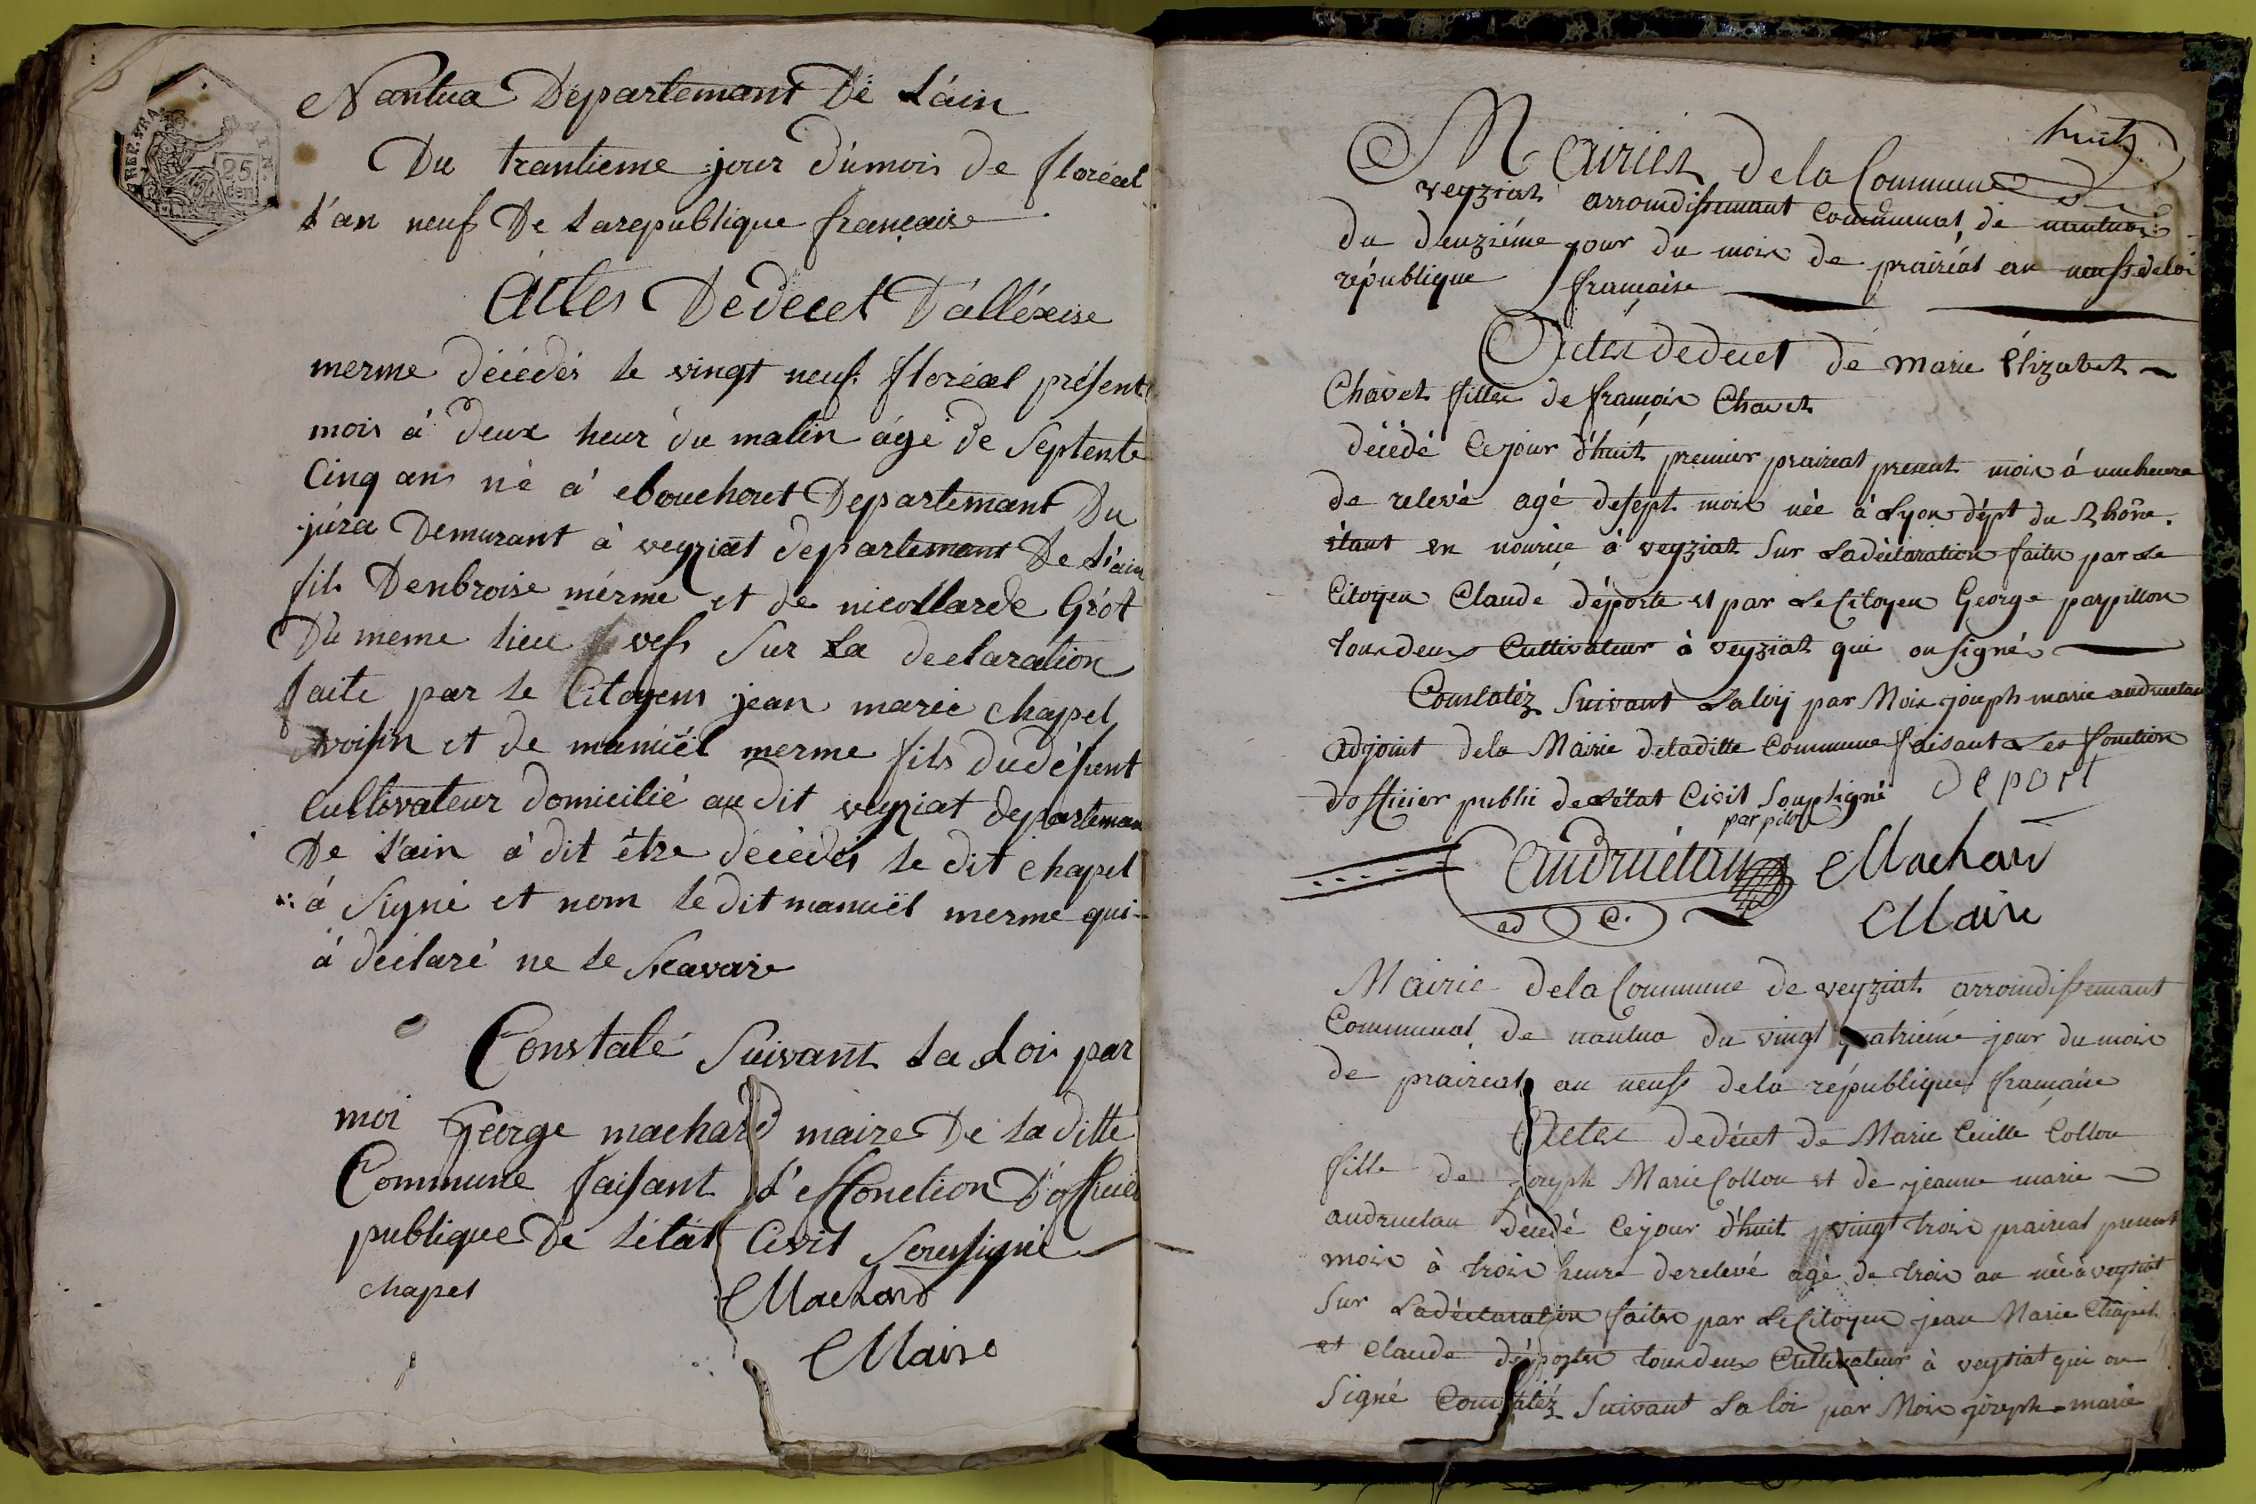 REP. FRA
AIN.
25
den
Nantua Département De L'ain
Du trantieme jour d'umois de floréal
l'an neuf De Larepublique française
Actes Dedecet D'alléxise
merme décédés le vingt neuf floréal présent
mois à deux heur du matin ágé de septente
Cinq ans né á ebouchout Departemant Du
jura Demurant à veyziat departemant De L'ain
fils Denbroise mérme et de nicollarde Grót
Du meme lieu vefs Sur La declaration
faite par le Citoyens jean marie chapel
voisin et de manuël merme fils dudéfunt
Cultivateur domicilié au dit veyziat departeman
De L'ain á dit étre décédés le dit chapel
á Signé et nom le dit manuël merme qui
á déclaré ne le Scavaire
Constaté Suivant La Loi par
moi George machard maire De la ditte
Commune faisant L'effonction D'officier
publique De L'état Civil Soussigné
chapel
Machard
Maire
huit
Mairies de la Commune De
veyziat arroindissemant Communal de nantua
du deuziéme jour du mois de prairéal an neuf dela
république française
Actes dedecet de Marie Élizabet
Chavet fille de françois Chavet
décédé Cejour d'huit premier praireal present mois á une heure
de relevé agé desept mois née á Lyon dépt du Rhône.
étant en nourice á veyziat Sur Ladéclaration faite par Le
Citoyen Claude déporte et par Le Citoyen George parpillon
tous deux Cultivateur à veyziat qui on signé
Constatéz Suivant Laloy par Mois joseph marie andruetan
adjoint dela Mairie deladitte Commune faisant Les fonction
dofficier public de L'état Civil Soussigné deport
par pilon
andruétan Machard
ad
Maire
Mairie dela Commune de veyziat arroindissemant
Communal de nantua du vingt quatriéme jour du mois
de praireal an neuf dela république française
Actes dedécet de Marie Cecille Collon
fille de joseph Marie Collon et de jeanne marie
andruetan décédé Cejour d'huit vingt trois praireal present
mois à trois heure derelevé agé de trois an née à veyziat
Sur Ladéclaration faite par Le Citoyen jean Marie Chapel
et Claude déporte tous deux Cultivateur à veyziat qui on
Signé Constatéz Suivant La loi par Mois joseph marie